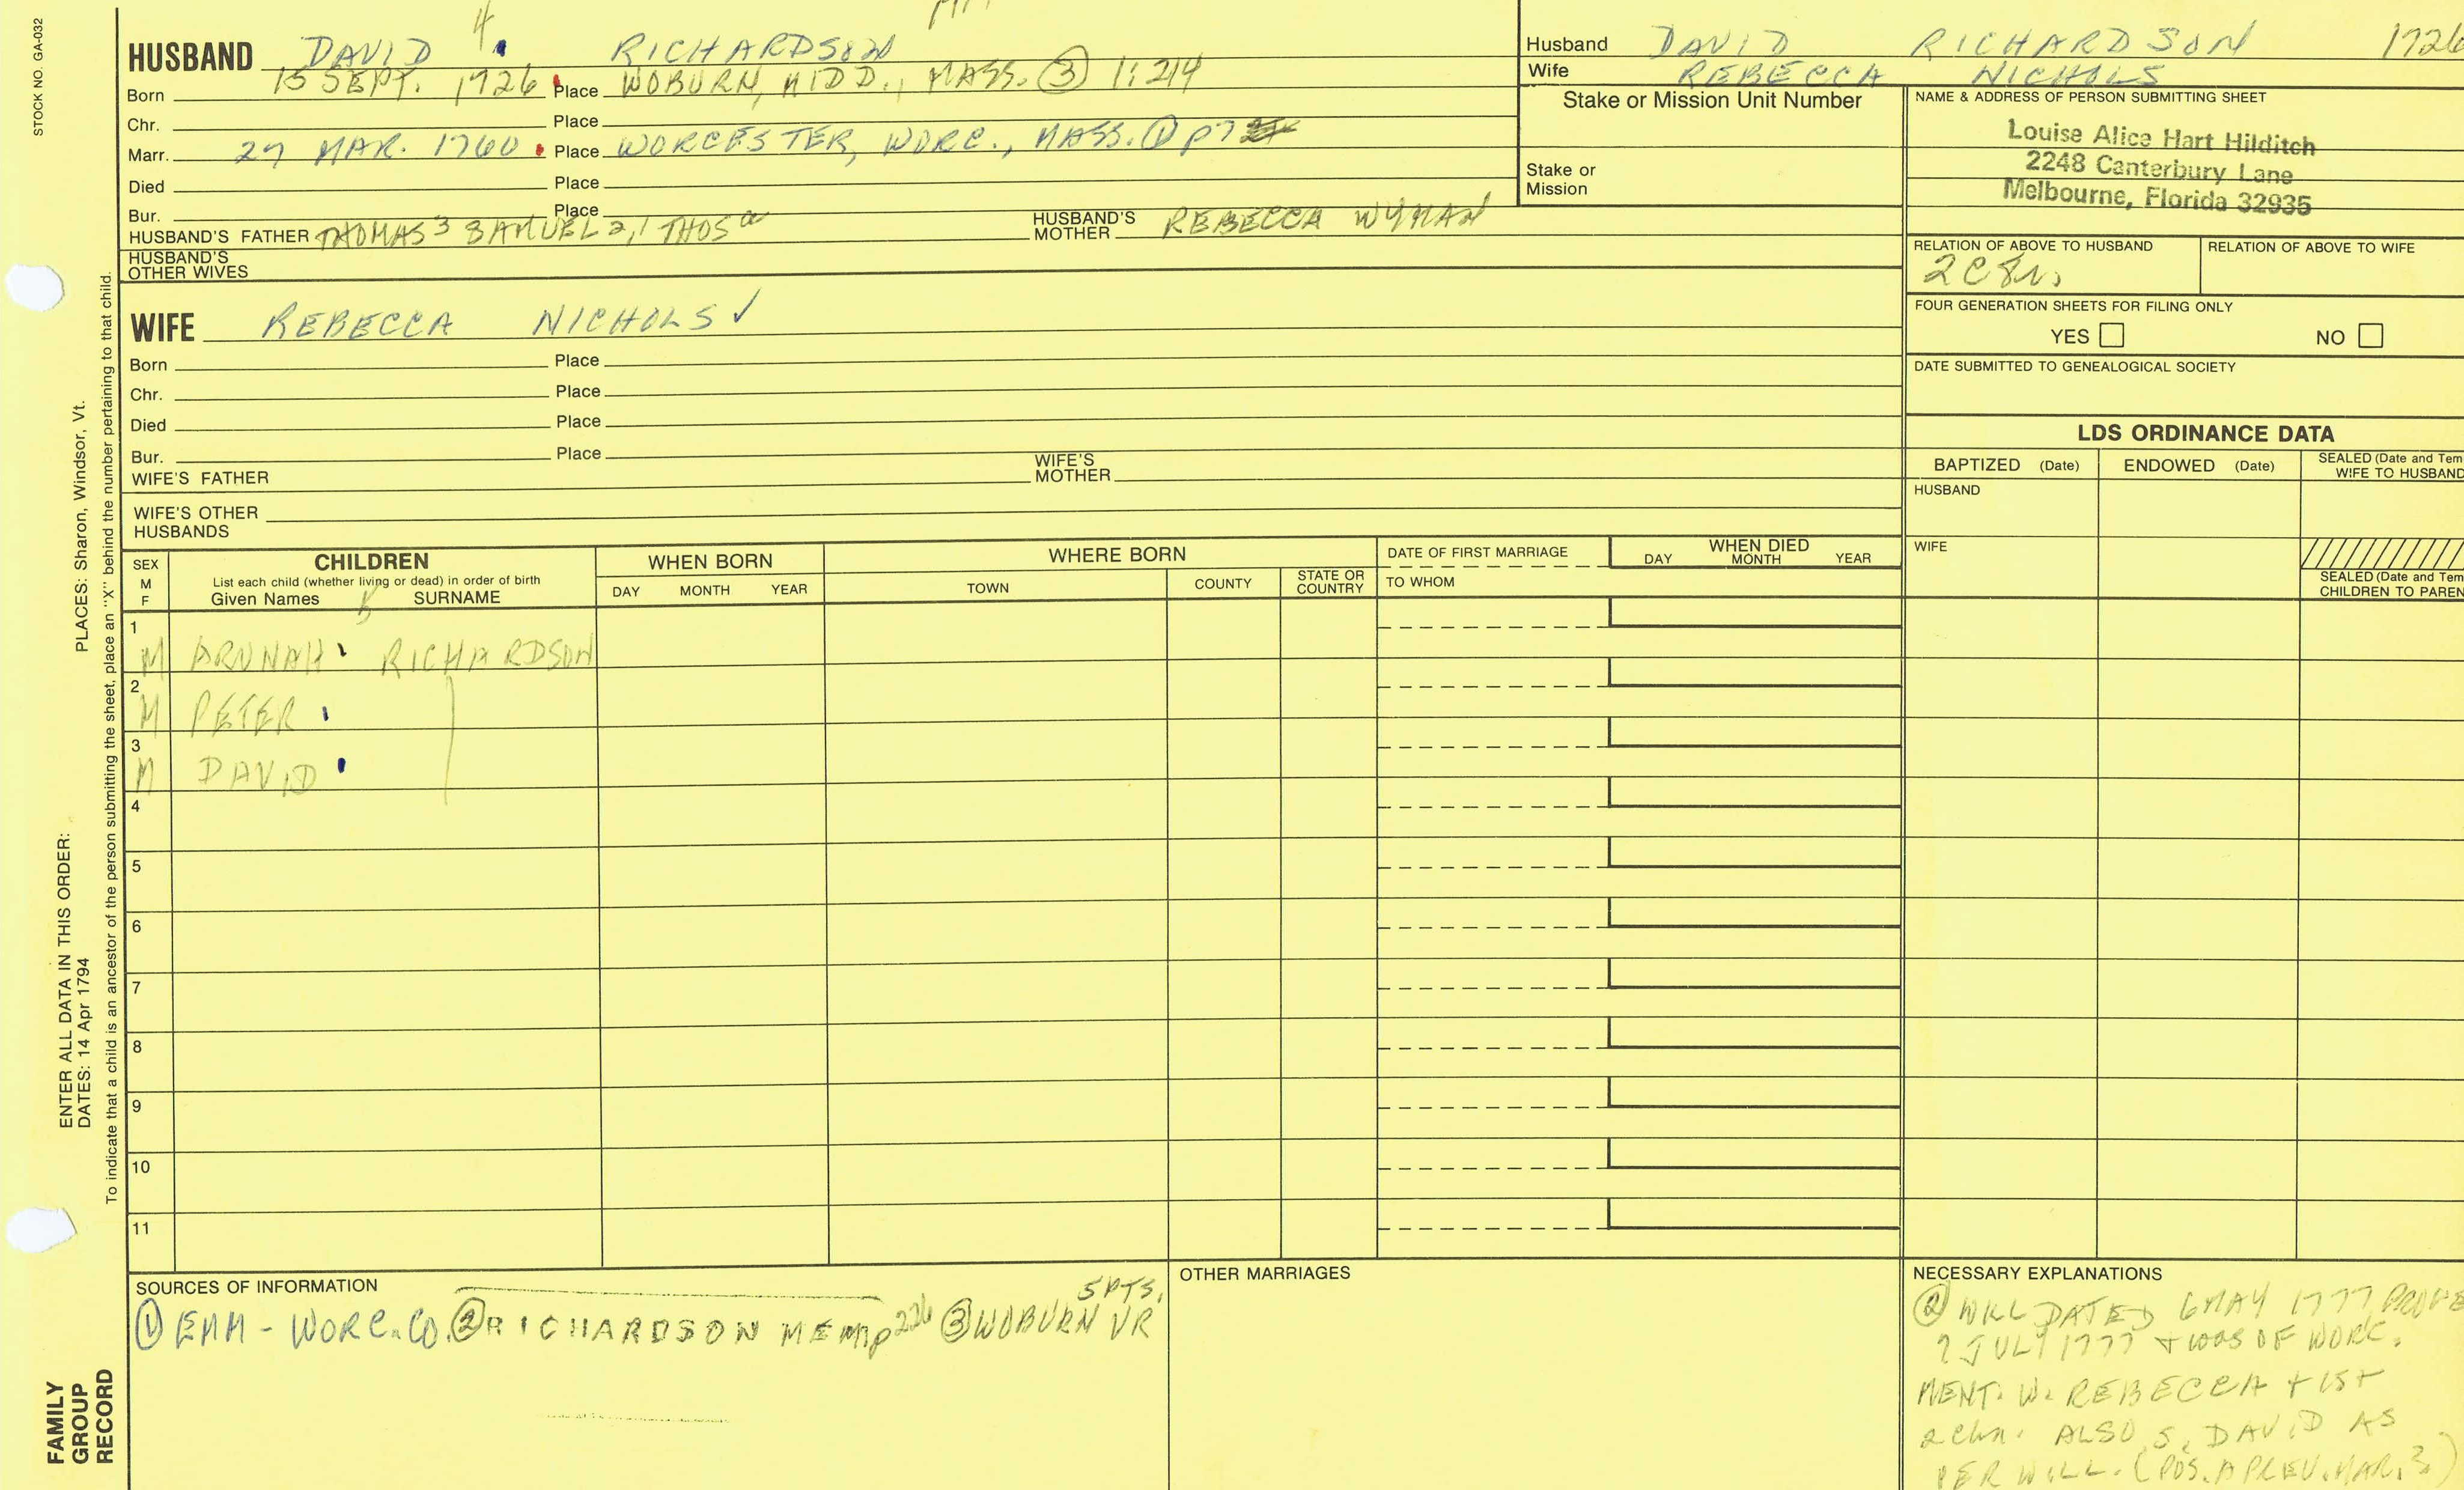 STOCK NO. GA-032
HUSBAND DAVID 4. RICHARDSON
Born 15 SEPT. 1726 Place WOBURN, MIDD., MASS. ③ 1:214
Chr. Place
Marr. 27 MAR. 1760 Place WORCESTER, WORC., MASS. ① p7
Died Place
Bur. Place
HUSBAND'S FATHER THOMAS 3 SAMUEL 2, 1 THOS a HUSBAND'S MOTHER REBECCA WYMAN
HUSBAND'S
OTHER WIVES
Husband DAVID RICHARDSON 1726
Wife REBECCA NICHOLS
Stake or Mission Unit Number
Stake or
Mission
NAME & ADDRESS OF PERSON SUBMITTING SHEET
Louise Alice Hart Hilditch
2248 Canterbury Lane
Melbourne, Florida 32935
RELATION OF ABOVE TO HUSBAND RELATION OF ABOVE TO WIFE
2C8R.
FOUR GENERATION SHEETS FOR FILING ONLY
YES NO
DATE SUBMITTED TO GENEALOGICAL SOCIETY
WIFE REBECCA NICHOLS ✓
Born Place
Chr. Place
Died Place
Bur. Place
WIFE'S FATHER WIFE'S MOTHER
WIFE'S OTHER
HUSBANDS
LDS ORDINANCE DATA
BAPTIZED (Date) ENDOWED (Date) SEALED (Date and Tem
WIFE TO HUSBAND
HUSBAND
WIFE
SEALED (Date and Tem
CHILDREN TO PAREN
SEX
M
F
CHILDREN
List each child (whether living or dead) in order of birth
Given Names SURNAME
WHEN BORN
DAY MONTH YEAR
WHERE BORN
TOWN COUNTY STATE OR COUNTRY
DATE OF FIRST MARRIAGE
TO WHOM
WHEN DIED
DAY MONTH YEAR
1
M ARUNAH RICHARDSON
2
M PETER
3
M DAVID
4
5
6
7
8
9
10
11
SOURCES OF INFORMATION
① EMM - WORC. CO. ② RICHARDSON MEM p 226 ③ WOBURN VR 5 PTS.
OTHER MARRIAGES
NECESSARY EXPLANATIONS
② WILL DATED 6 MAY 1777 PROVE
7 JULY 1777 + WAS OF WORC.
MENT. W. REBECCA + 1ST
2 chn. ALSO S. DAVID AS
PER WILL. (POS. A PREV. MAR.?)
PLACES: Sharon, Windsor, Vt.
ENTER ALL DATA IN THIS ORDER:
DATES: 14 Apr 1794
To indicate that a child is an ancestor of the person submitting the sheet, place an "X" behind the number pertaining to that child.
FAMILY
GROUP
RECORD